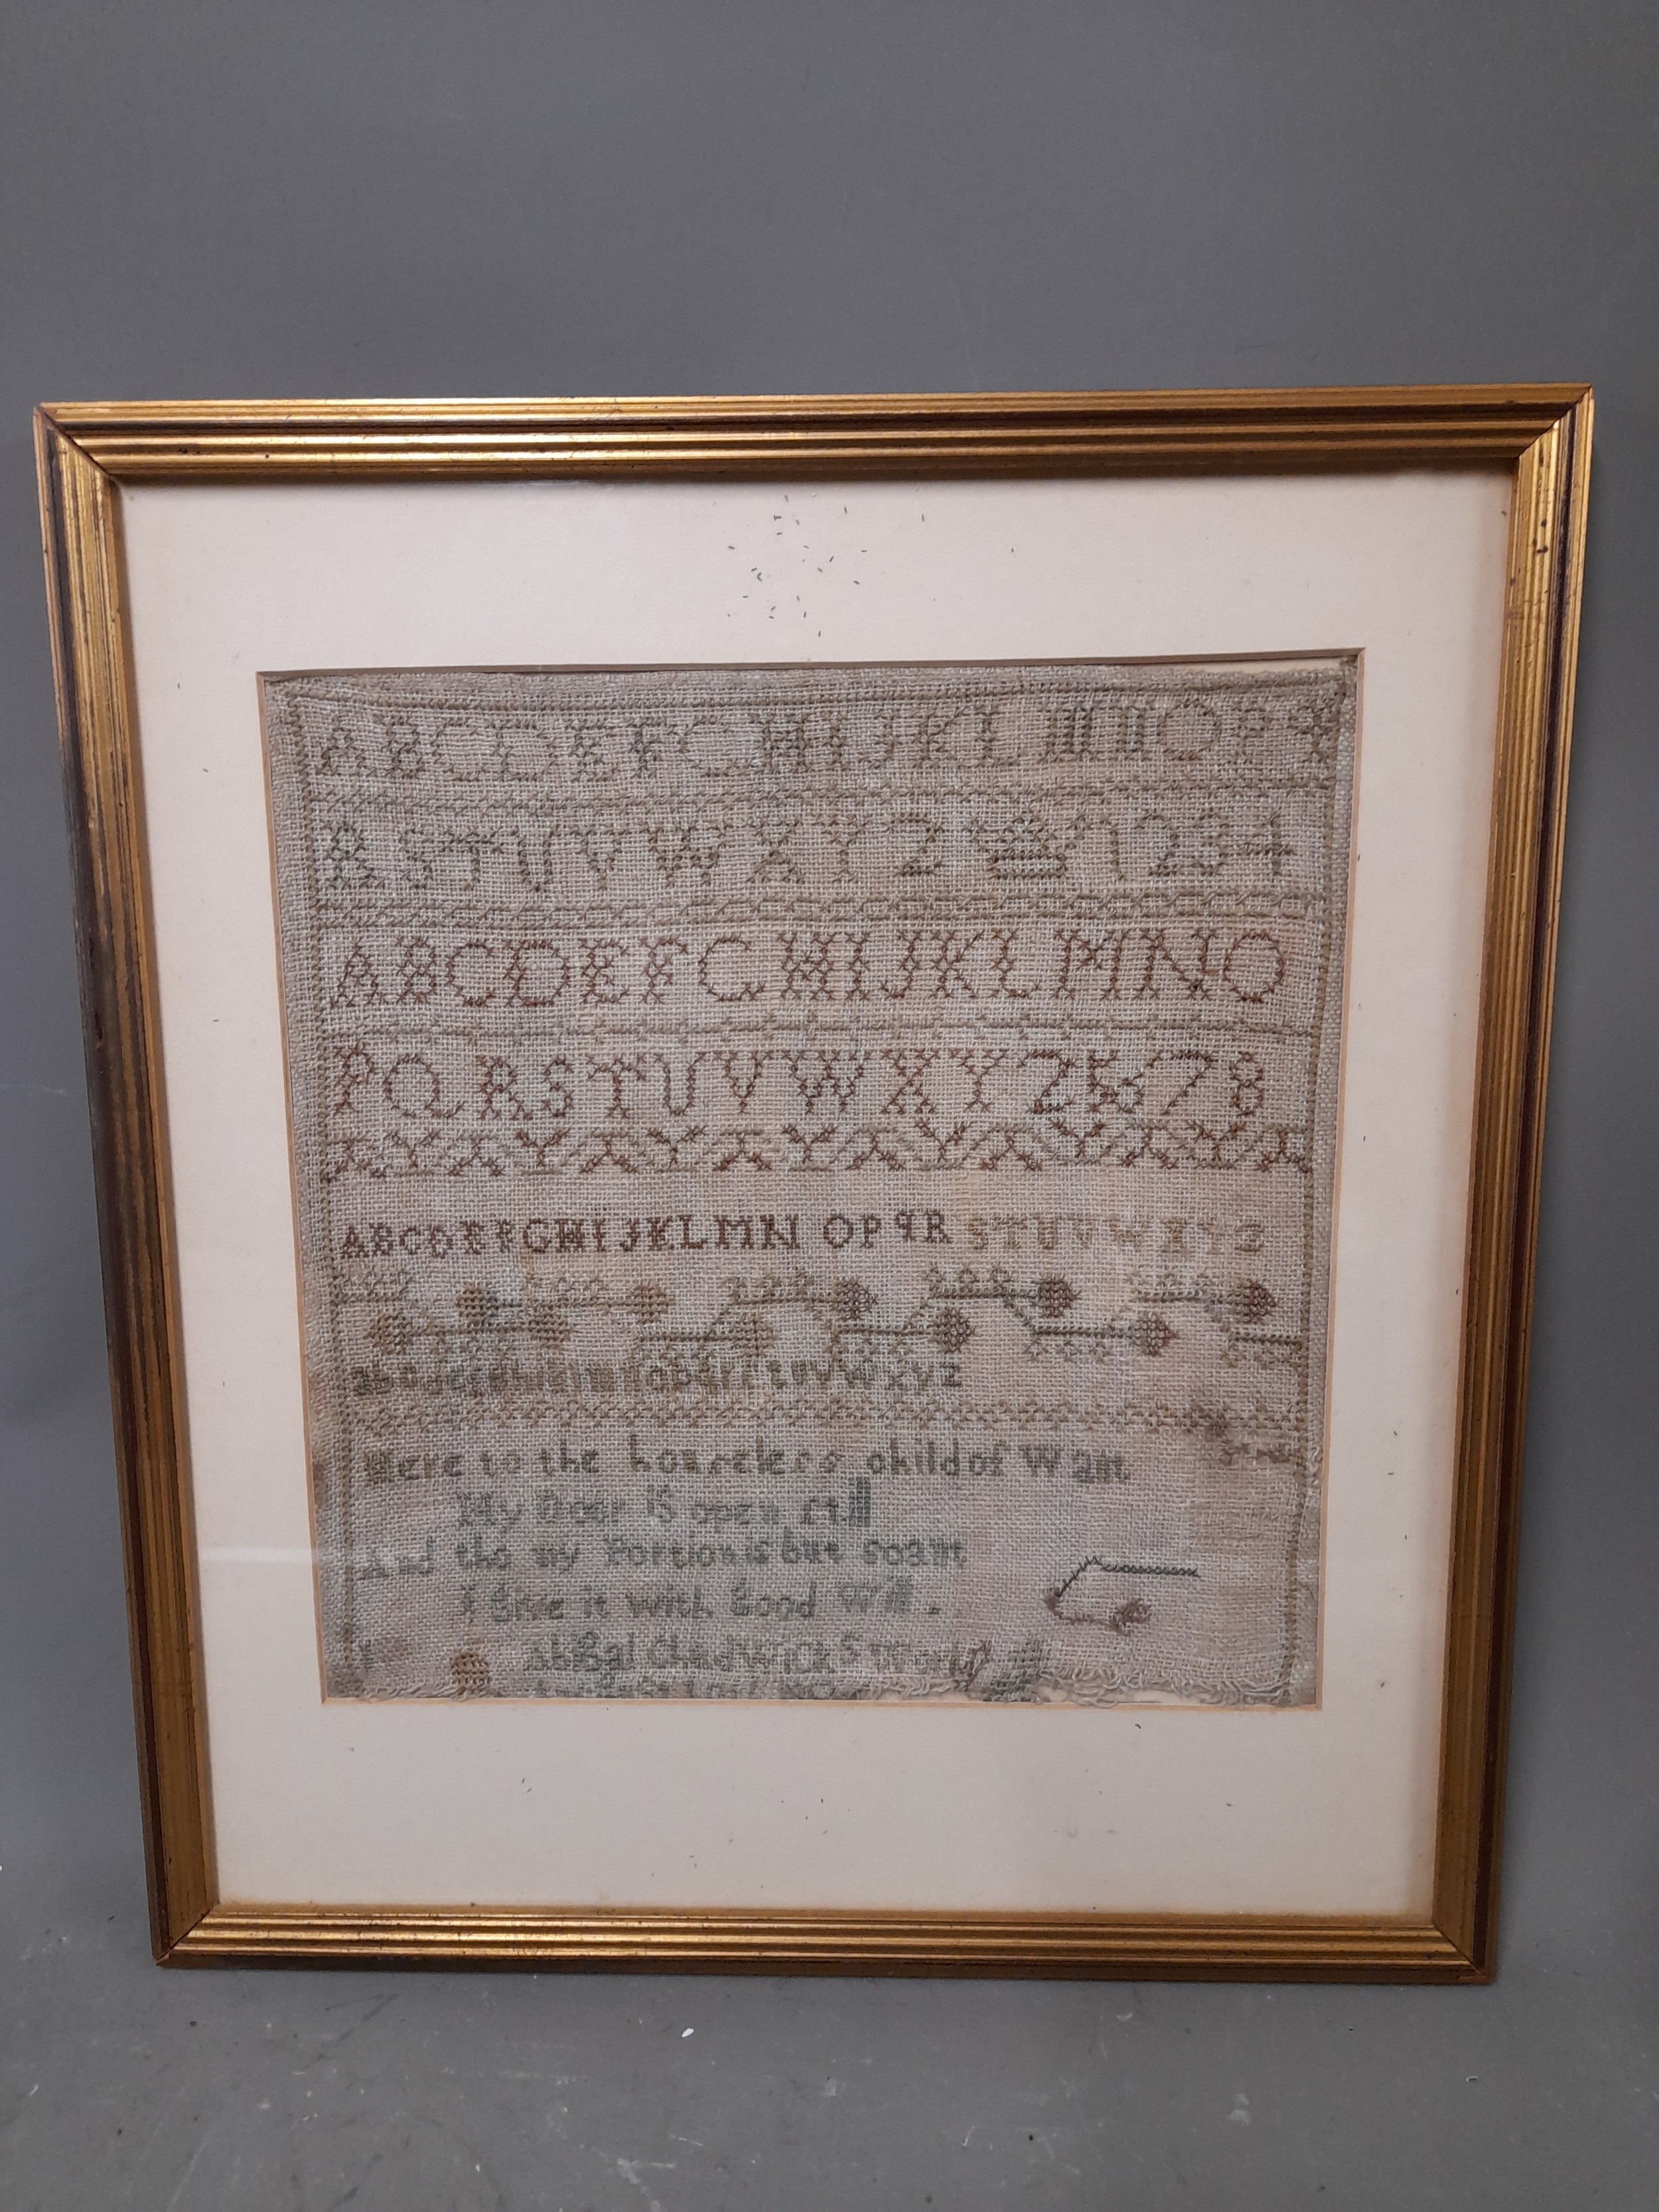 ABCDEFGHIJKLMNOPq
RSTUVWXYZ 1234
ABCDEFGHIJKLMNO
PQRSTUVWXYZ5678
ABCDEFGHIJKLMN OPqR STUVWXYZ
tuvwxyz
Here to the child of Want
My Door is open still
And tho my Portion is but scant
I Give it with Good Will.
Chadwick's Work